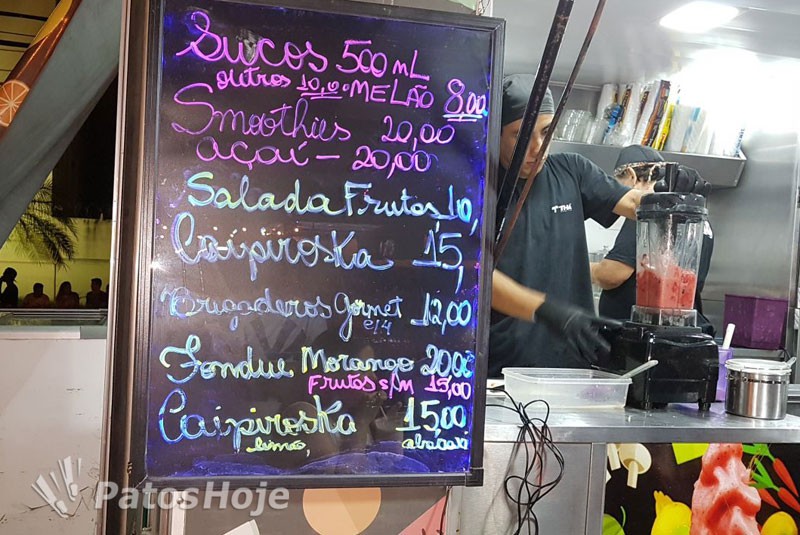 Sucos 500mL
outros 10,00 MELÃO 8,00
Smoothies 20,00
açaí – 20,00
Salada Frutas 10,
Caipiroska 15,
Brigaderos Gornet 12,00
c/4
Fondue Morango 20,00
FRUTAS s/M 15,00
Caipiroska 15,00
limão, abacaxi
PatosHoje